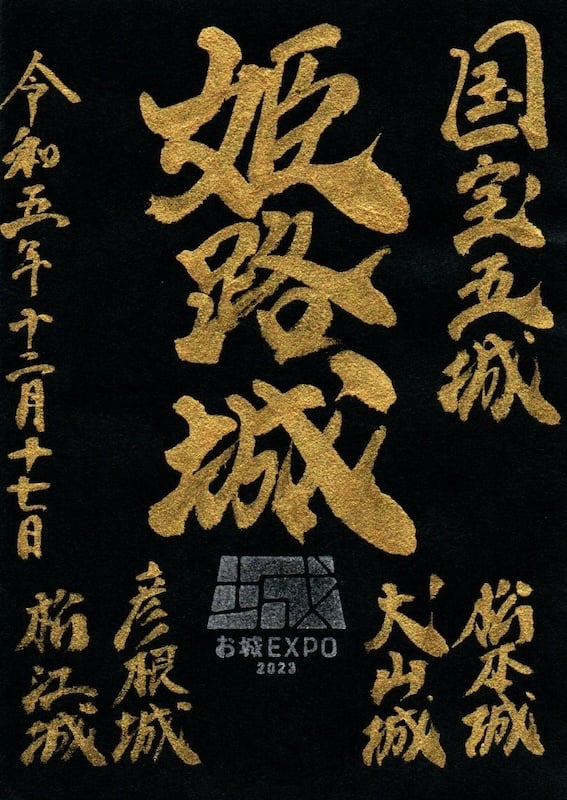 国宝五城
姫路城
令和五年十二月十七日
松本城
犬山城
城
お城EXPO
2023
彦根城
松江城